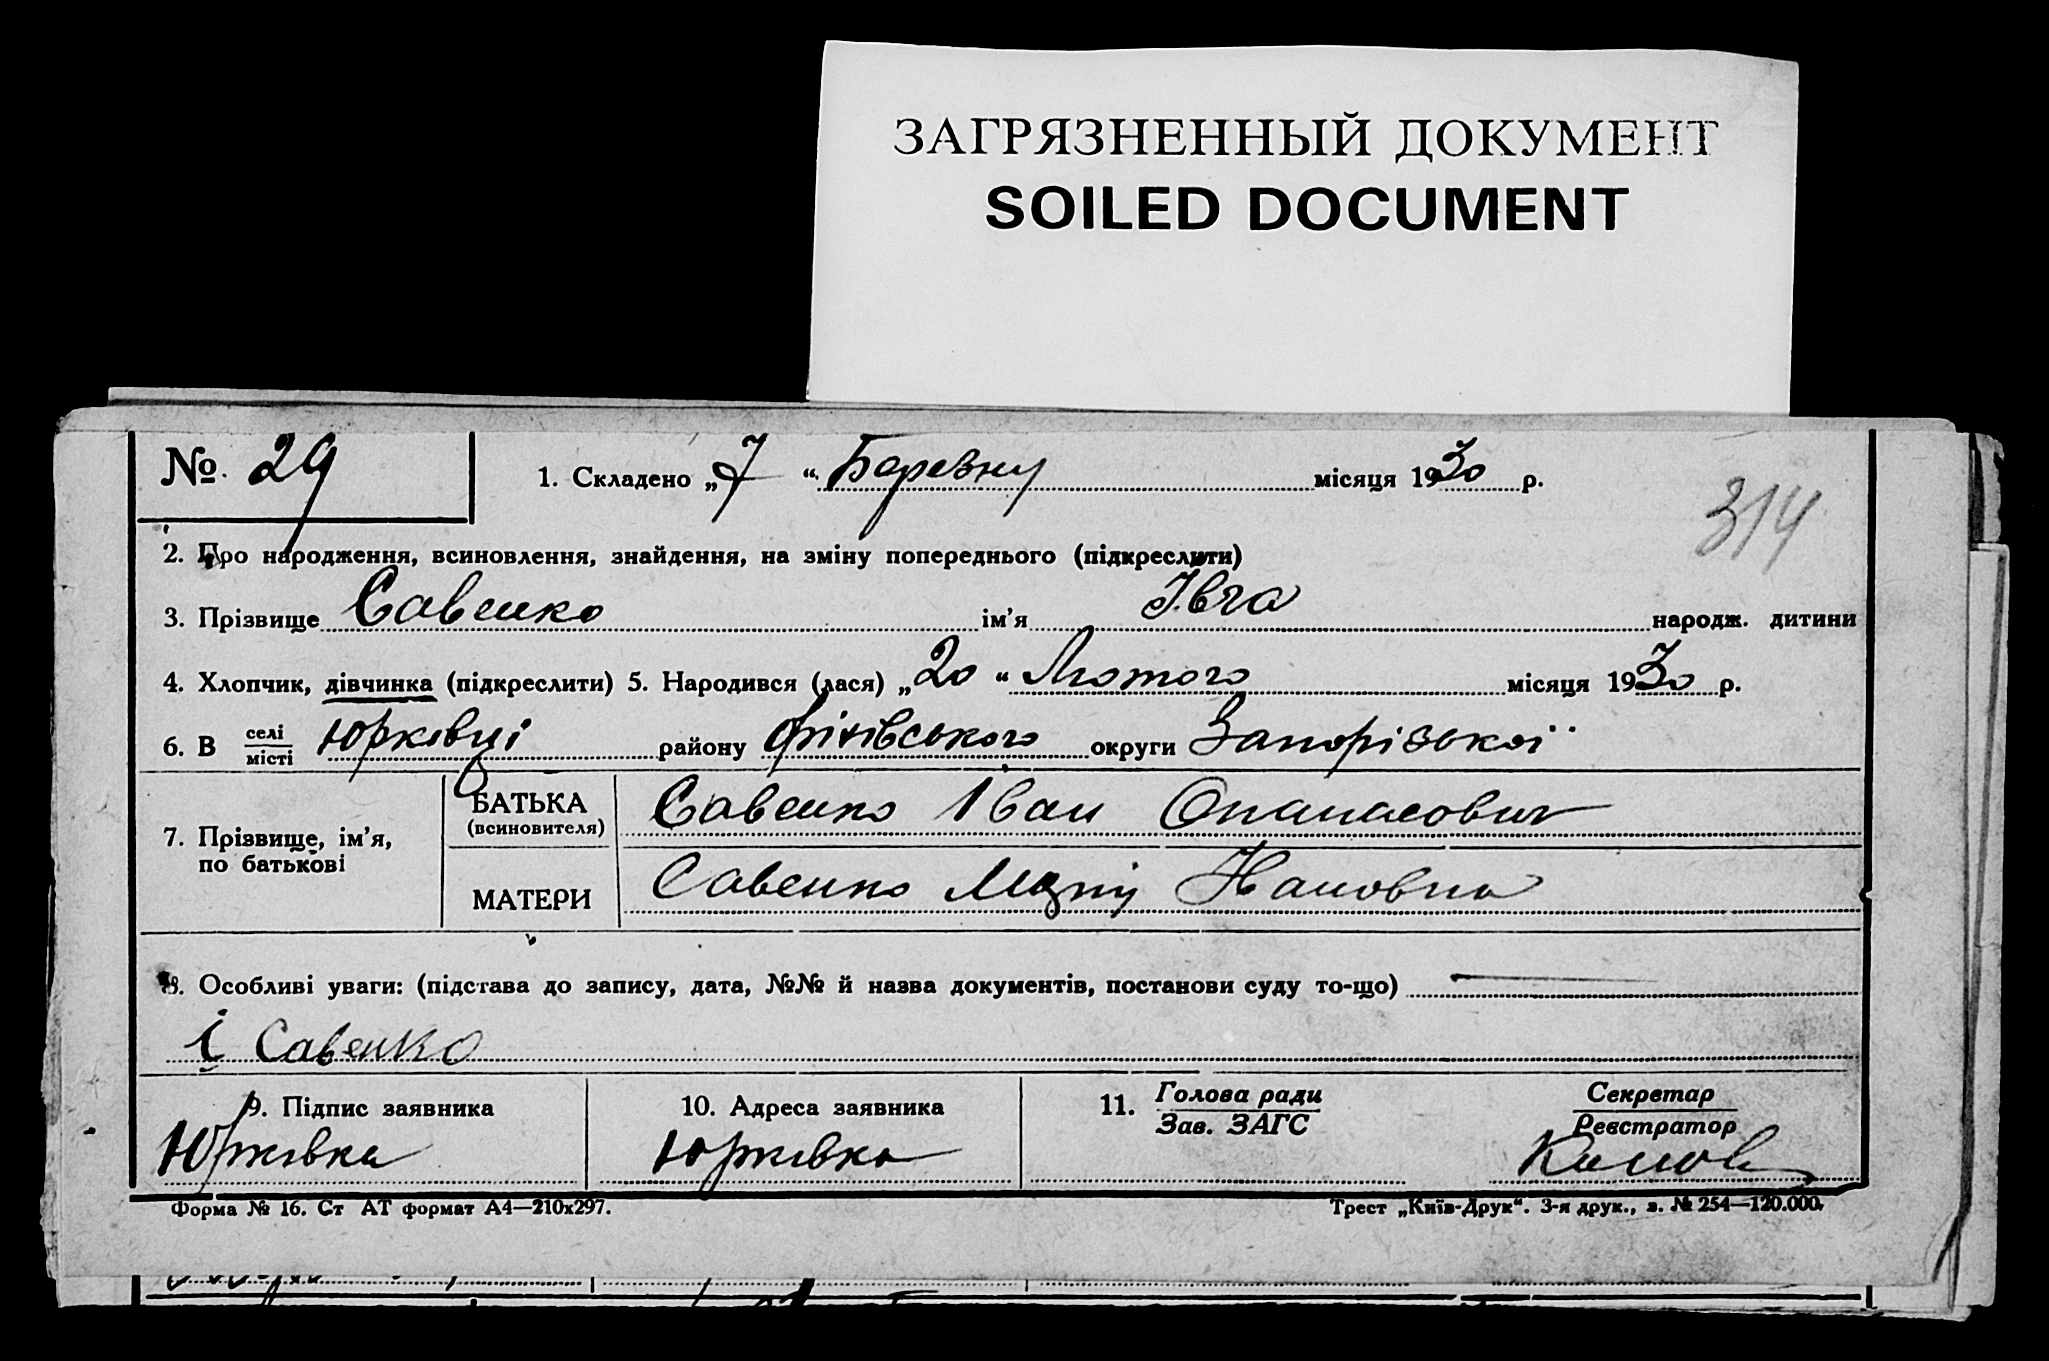 ЗАГРЯЗНЕННЫЙ ДОКУМЕНТ
SOILED DOCUMENT
№ 29
1. Складено „7“ Березну місяця 1930 р.
314
2. Про народження, всиновлення, знайдення, на зміну попереднього (підкреслити)
3. Прізвище Савенко ім’я Івга народж. дитини
4. Хлопчик, дівчинка (підкреслити) 5. Народився (лася) „20“ Лютого місяця 1930 р.
6. В селі/місті Юрківці району округи Запорізької
7. Прізвище, ім’я, по батькові
БАТЬКА (всиновителя) Савенко Іван Опанасович
МАТЕРИ Савенко
8. Особливі уваги: (підстава до запису, дата, №№ й назва документів, постанови суду то-що)
І Савенко
9. Підпис заявника
10. Адреса заявника
11. Голова ради/Зав. ЗАГС
Секретар/Реєстратор
Юрківка Юрківка
Форма № 16. Ст АТ формат А4—210x297.
Трест „Київ-Друк“. 3-я друк., з. № 254—120.000.